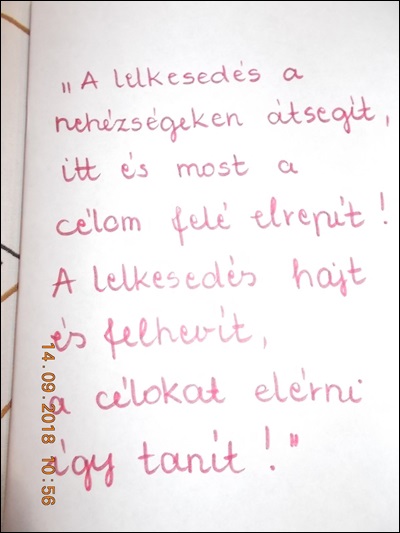 „A lelkesedés a
nehézségeken átsegít,
itt és most a
célom felé elrepít!
A lelkesedés hajt
és felhevít,
a célokat elérni
így tanít!"
14.09.2018 10:56